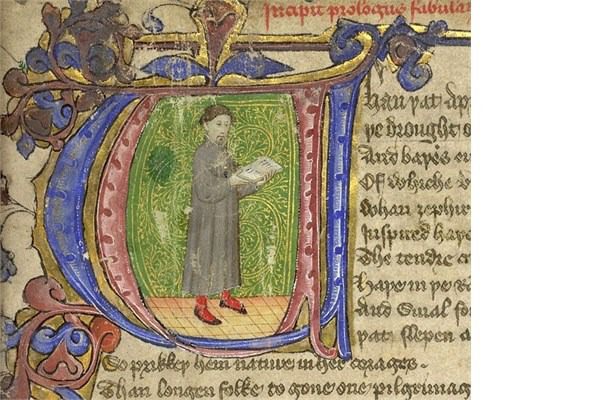 Incipit prologus fabular
Whan þat apr
þe drought o
And baþes eu
Of whiche v
Whan zephir
Inspired haþe
The tendre cr
haþe in þe ra
And smal fo
þat slepen a
So prikkeþ hem nature in her corages
Than longen folke to gone one pilgrimag